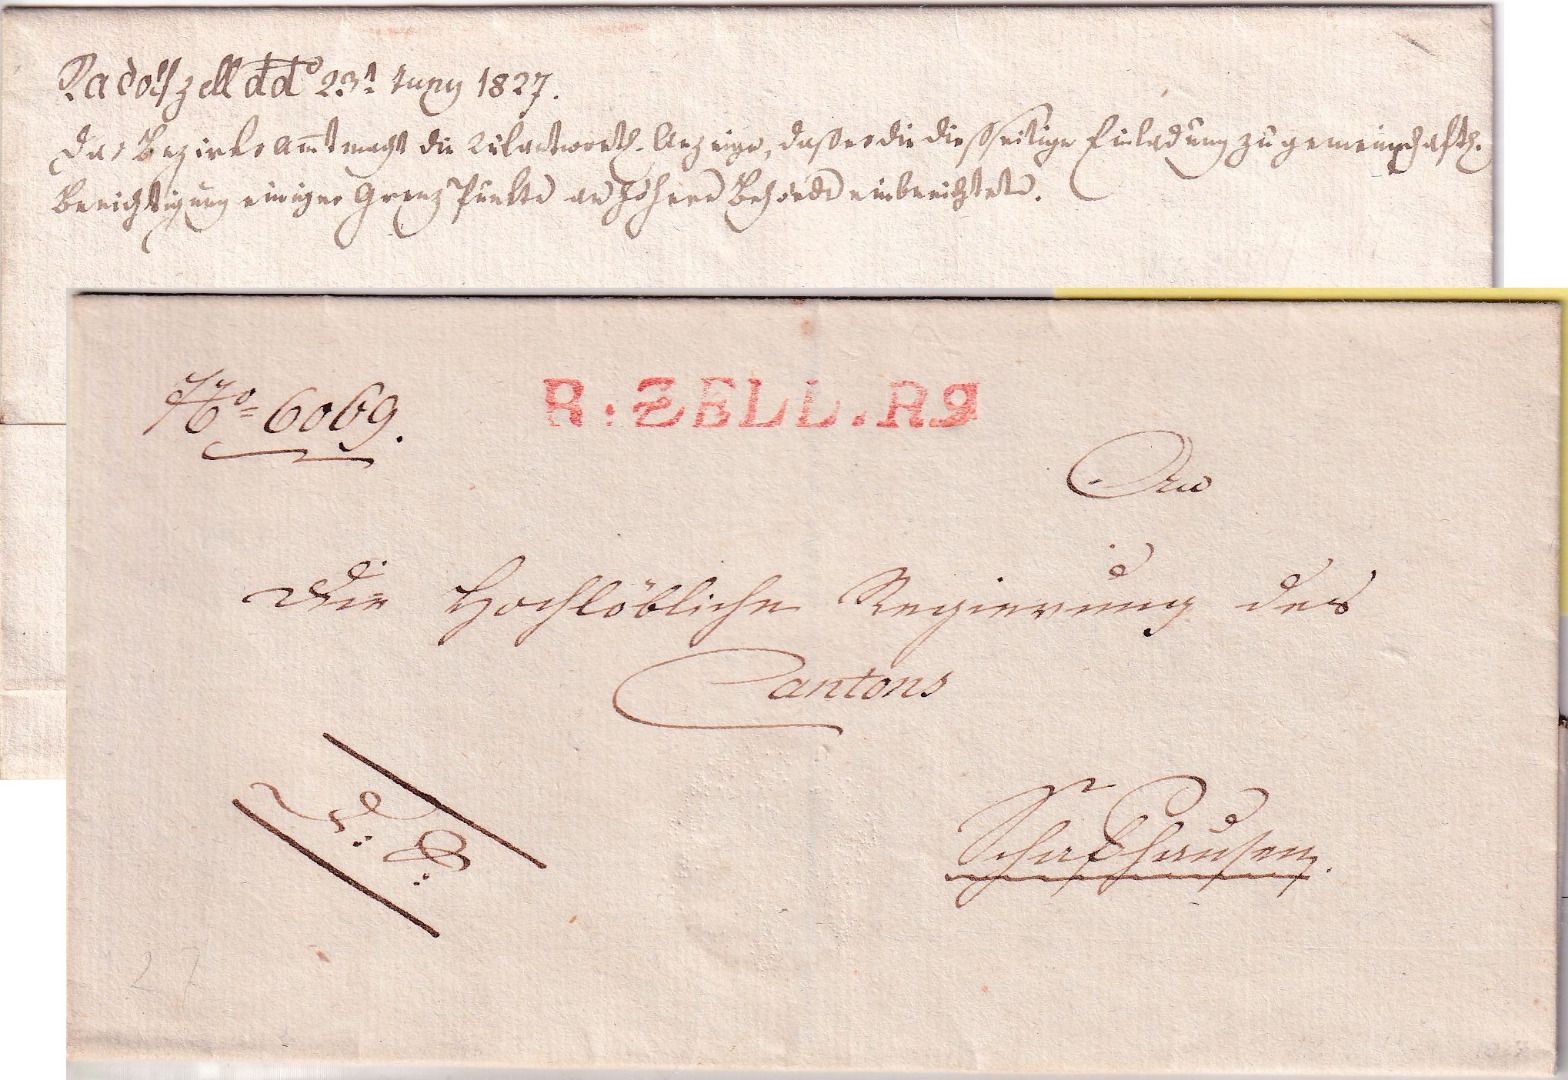 Radolfzell ddo 23t Juny 1827.
Das Bezirks Amt macht die Anzeige, daß es die diesseitige Einladung zu gemeinschaftl.
Berichtigung einiger Grenz Punkte an höhere Behörde einberichtete.
No 6069.
R. ZELL. R2
An
Die Hochlöbliche Regierung des
Cantons
Schafhausen.
D. S.
27